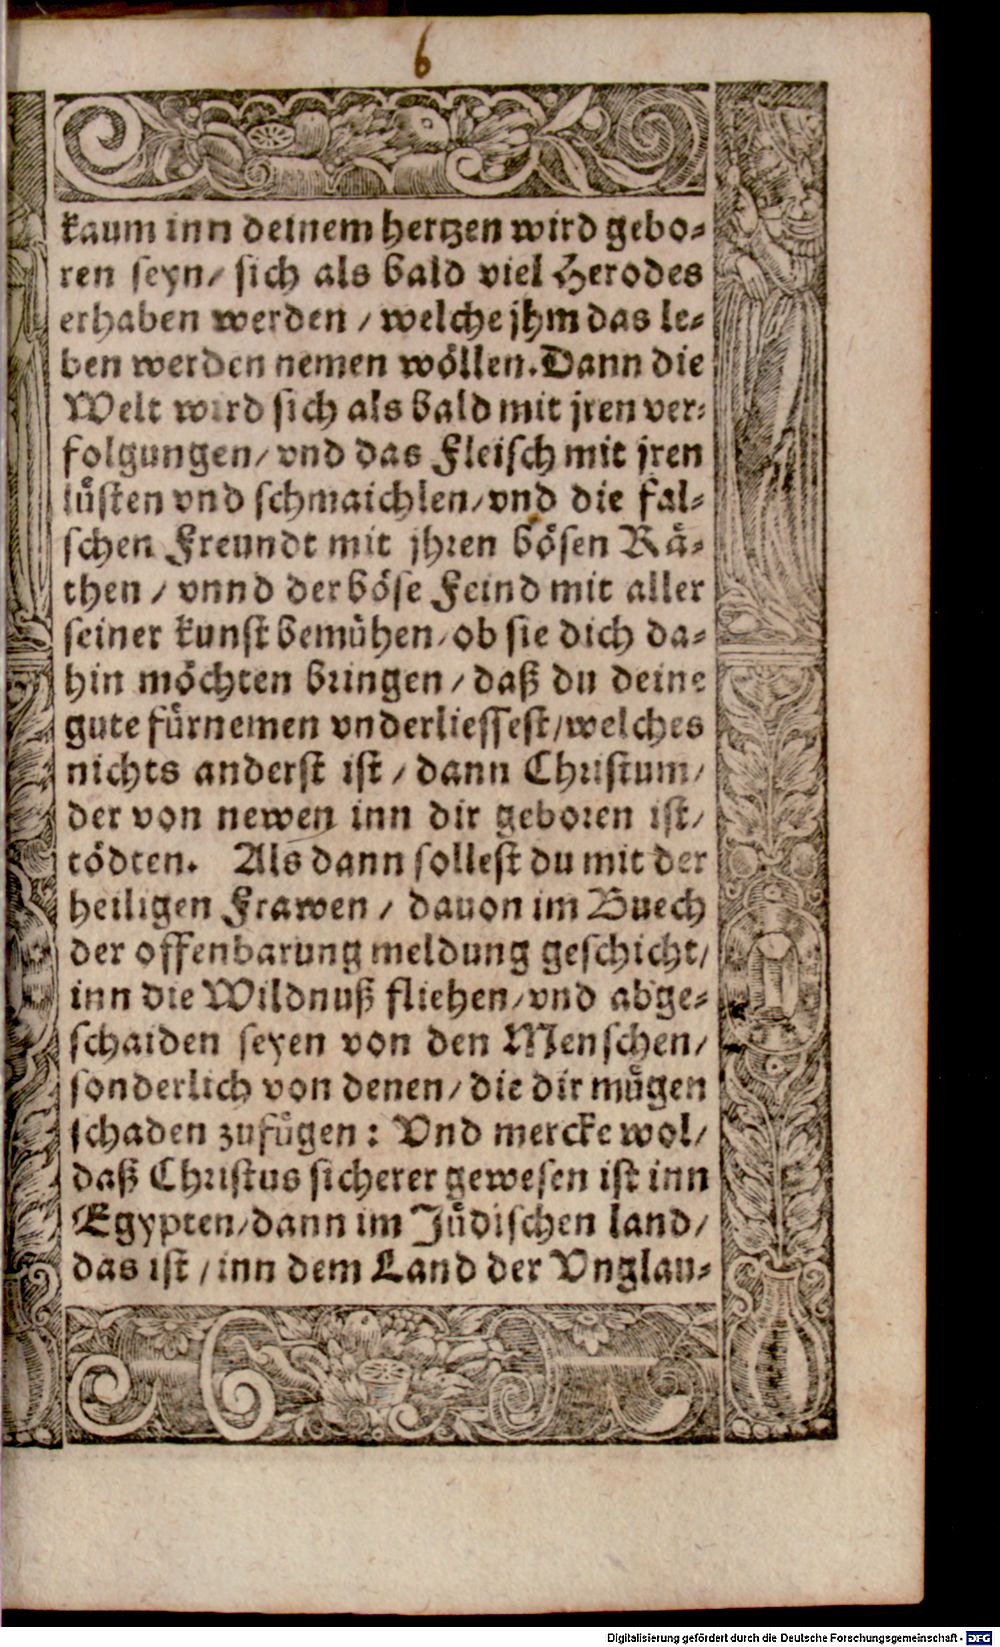 6
kaum inn deinem hertzen wird gebo⸗
ren seyn/ sich als bald viel Herodes
erhaben werden / welche jhm das le⸗
ben werden nemen wöllen. Dann die
Welt wird sich als bald mit jren ver⸗
folgungen/ vnd das Fleisch mit jren
lüsten vnd schmaichlen/ vnd die fal⸗
schen Freundt mit jhren bösen Rä⸗
then / vnnd der böse Feind mit aller
seiner kunst bemühen/ ob sie dich da⸗
hin möchten bringen / daß du deine
gute fürnemen vnderliessest/ welches
nichts anderst ist / dann Christum/
der von newen inn dir geboren ist/
tödten. Als dann sollest du mit der
heiligen Frawen / dauon im Buech
der offenbarung meldung geschicht/
inn die Wildnuß fliehen/ vnd abge⸗
schaiden seyen von den Menschen/
sonderlich von denen/ die dir mügen
schaden zufügen : Vnd mercke wol/
daß Christus sicherer gewesen ist inn
Egypten/ dann im Jüdischen land/
das ist / inn dem Land der Vnglau⸗
Digitalisierung gefördert durch die Deutsche Forschungsgemeinschaft - DFG